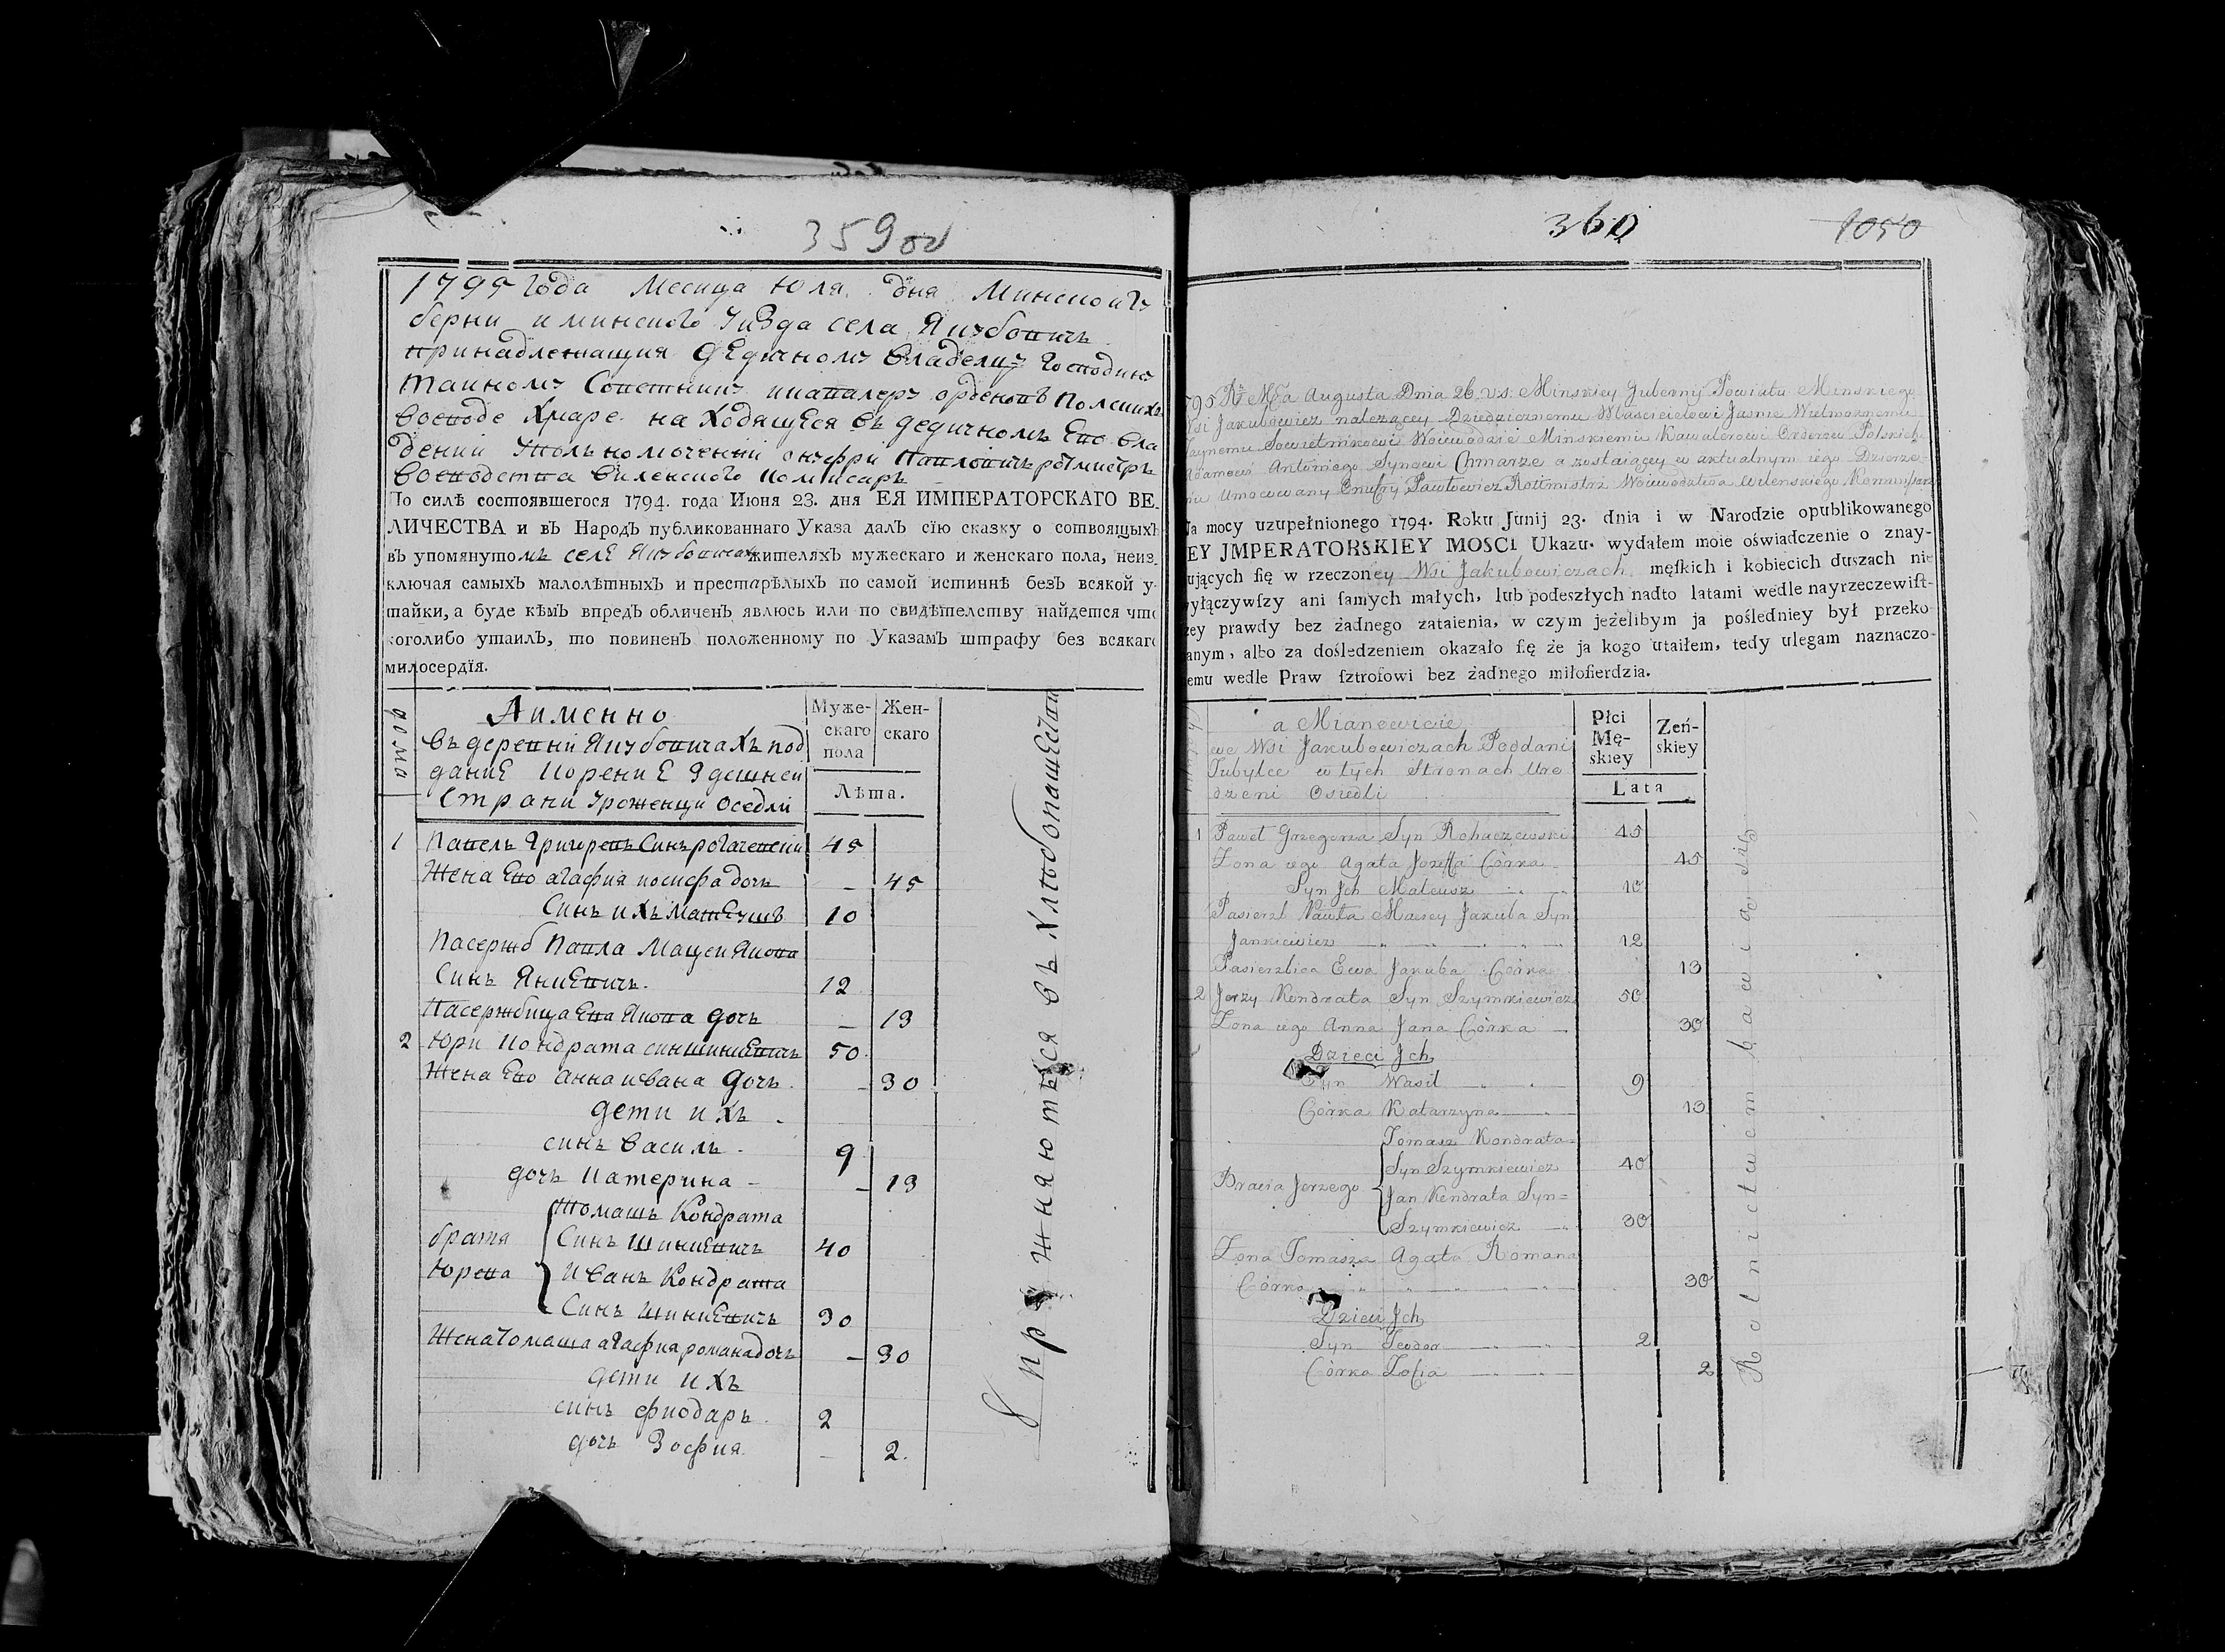 359 об
1795 года Месяца Юля дня Минскои Гу
берни и минского Уизда села Якубовичъ
принадлежащия Дедичному Владелцу Господину
Таиному Советнику икавалеру орденовъ Полскихъ
Воеводе Хмаре находящеся въ дедичномъ Ево Вла
дении Уполъномоченни онуфри Павловичъ ротмистръ
Воеводства Виленского Комисаръ
По силѣ состоявшегося 1794. года Июня 23. дня ЕЯ ИМПЕРАТОРСКАГО ВЕ-
ЛИЧЕСТВА и въ Народъ публикованнаго Указа далъ сїю сказку о сотвоящыхъ
въ упомянутомъ селе Якубовичахъ жителяхъ мужескаго и женскаго пола, неиз-
ключая самыхъ малолѣтныхъ и престарѣлыхъ по самой истиннѣ безъ всякой у-
тайки, а буде кѣмъ впредъ обличенъ явлюсь или по свидѣтелству найдется что
коголибо утаилъ, то повиненъ положенному по Указамъ штрафу без всякаго
милосердїя.
дома
Аименно
въ деревни Якубовичахъ под
дание Корение Здешней
Страни Уроженци Оседли
Муже-
скаго
пола
Жен-
скаго
Лѣта.
1 Павелъ Григоревъ Синъ рогачевски 45
Жена Ево агафия иосифа дочь – 45
Синъ ихъ Матеушъ 10
Пасержб Павла Мацеи Якова
Синъ Янкевичъ. 12
Пасержбица Ева Якова дочь – 13
2 Юри Кондрата син шимкевичъ 50
Жена Ево анна ивана дочь – 30
дети ихъ
синъ Василь 9
дочь Катерина – 13
брата Юрева
Томашъ Кондрата
Синъ Шимкевичъ 40
Иванъ Кондрата
Синъ шимкевичъ 30
Жена Томаша агафиа романа дочь – 30
дети ихъ
синъ фиодаръ 2
дочь Зофия – 2.
упражняютъся въ хлѣбопашествѣ
360
1050
795 Rō Mca Augusta Dnia 26 v.s. Minskiey Gubernij Powiatu Minskiego
Wsi Jakubowicz należącey Dziedzicznemu Włascicielowi Jasnie Wielmożnemu
Taynemu Sowietnikowi Woiewodzie Minskiemu Kawalerowi Orderow Polskich
Adamowi Antoniego Synowi Chmarze a zostaiącey w aktualnym iego Dzierże-
niu Umocowany Onufry Pawłowicz Rottmistrz Woiewodztwa Wilenskiego Kommissarz
Na mocy uzupełnionego 1794. Roku Junij 23. dnia i w Narodzie opublikowanego
EY JMPERATORSKIEY MOSCI Ukazu. wydałem moie oświadczenie o znay-
ujących ſię w rzeczoney Wsi Jakubowiczach męſkich i kobiecich duszach nie
yłączywſzy ani ſamych małych, lub podeszłych nadto latami wedle nayrzeczewiſt-
zey prawdy bez żadnego zataienia, w czym jeżelibym ja poślednіey był przeko-
anym, albo za dośledzeniem okazało ſię że ja kogo utaiłem, tedy ulegam naznaczo-
emu wedle Praw ſztrofowi bez żadnego miłoſierdzia.
a Mianowicie
we Wsi Jakubowiczach Poddani
Tubylce w tych Stronach Uro
dzeni Osiedli
Płci
Mę-
skiey
Żeń-
skiey
Lata
1 Paweł Grzegorza Syn Rohaczewski 45
Żona iego Agata Jozeffa Córka 45
Syn Jch Mateusz 10
Pasierzb Pawła Maciey Jakuba Syn
Jankiewicz 12
Pasierzbica Ewa Jakuba Córka 13
2 Jerzy Kondrata Syn Szymkiewicz 50
Żona iego Anna Jana Córka 30
Dzieci Jch
Syn Wasil 9
Córka Katarzyna 13
Bracia Jerzego
Tomasz Kondrata=
Syn Szymkiewicz 40
Jan Kondrata Syn=
Szymkiewicz 30
Żona Tomasza Agata Romana
Córka 30
Dzieci Jch
Syn Teodor 2
Córka Zofia 2
Rolnictwem bawią się